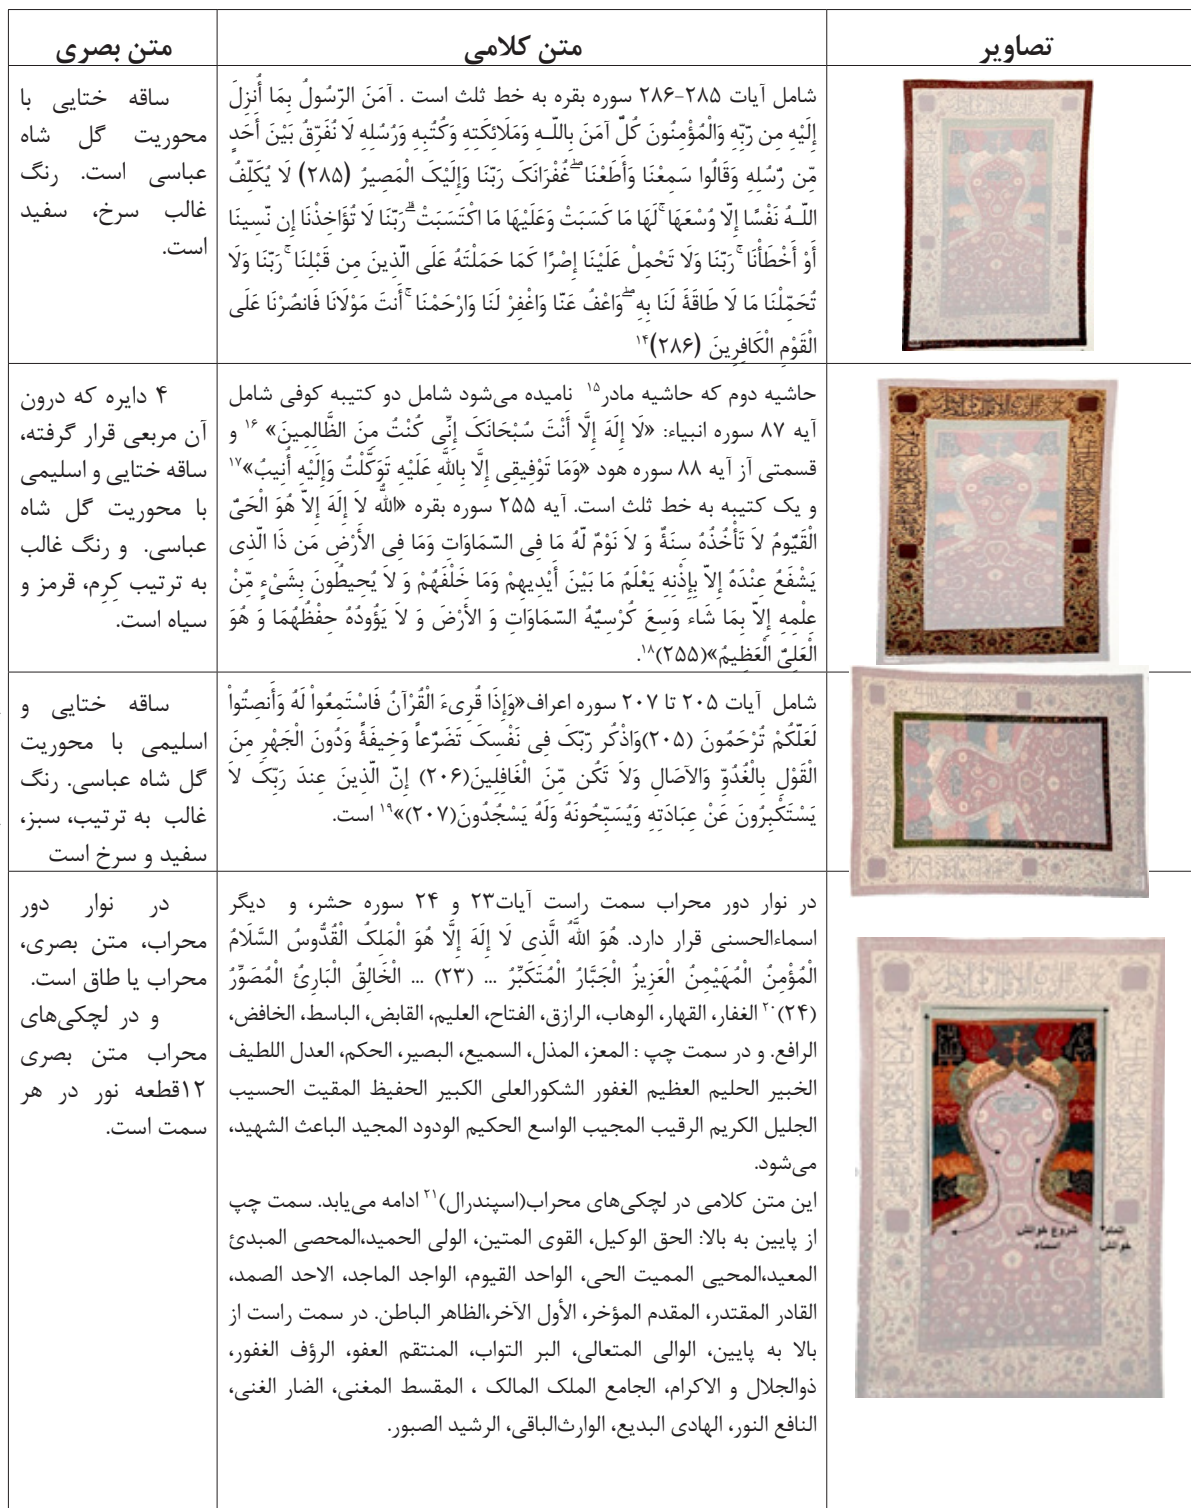 تصاویر
متن کلامی
متن بصری
شامل آیات ۲۸۵-۲۸۶ سوره بقره به خط ثلث است . آمَنَ الرّسُولُ بِمَا أُنزِلَ
إِلَیْهِ مِن رّبِّهِ وَالْمُؤْمِنُونَ کُلّ آمَنَ بِاللّـهِ وَمَلَائِکَتِهِ وَکُتُبِهِ وَرُسُلِهِ لَا نُفَرِّقُ بَیْنَ أَحَدٍ
مِّن رُّسُلِهِ وَقَالُوا سَمِعْنَا وَأَطَعْنَا ۖ غُفْرَانَکَ رَبّنَا وَإِلَیْکَ الْمَصِیرُ (۲۸۵) لَا یُکَلِّفُ
اللّـهُ نَفْسًا إِلّا وُسْعَهَا ۚ لَهَا مَا کَسَبَتْ وَعَلَیْهَا مَا اکْتَسَبَتْ ۗ رَبّنَا لَا تُؤَاخِذْنَا إِن نّسِینَا
أَوْ أَخْطَأْنَا ۚ رَبّنَا وَلَا تَحْمِلْ عَلَیْنَا إِصْرًا کَمَا حَمَلْتَهُ عَلَی الّذِینَ مِن قَبْلِنَا ۚ رَبّنَا وَلَا
تُحَمِّلْنَا مَا لَا طَاقَةَ لَنَا بِهِ ۖ وَاعْفُ عَنّا وَاغْفِرْ لَنَا وَارْحَمْنَا ۚ أَنتَ مَوْلَانَا فَانصُرْنَا عَلَی
الْقَوْمِ الْکَافِرِینَ (۲۸۶)۱۴
ساقه ختایی با
محوریت گل شاه
عباسی است. رنگ
غالب سرخ، سفید
است.
حاشیه دوم که حاشیه مادر۱۵ نامیده می‌شود شامل دو کتیبه کوفی شامل
آیه ۸۷ سوره انبیاء: «لَا إِلَهَ إِلَّا أَنْتَ سُبْحَانَکَ إِنِّی کُنْتُ مِنَ الظَّالِمِینَ» ۱۶ و
قسمتی آز آیه ۸۸ سوره هود «وَمَا تَوْفِیقِی إِلَّا بِاللَّهِ عَلَیْهِ تَوَکَّلْتُ وَإِلَیْهِ أُنِیبُ»۱۷
و یک کتیبه به خط ثلث است. آیه ۲۵۵ سوره بقره «اللّه لاَ إِلَهَ إِلاّ هُوَ الْحَیّ
الْقَیّومُ لاَ تَأْخُذُهُ سِنَةٌ وَ لاَ نَوْمٌ لّهُ مَا فِی السّمَاوَاتِ وَمَا فِی الأَرْضِ مَن ذَا الّذِی
یَشْفَعُ عِنْدَهُ إِلاّ بِإِذْنِهِ یَعْلَمُ مَا بَیْنَ أَیْدِیهِمْ وَمَا خَلْفَهُمْ وَ لاَ یُحِیطُونَ بِشَیْءٍ مِّنْ
عِلْمِهِ إِلاّ بِمَا شَاء وَسِعَ کُرْسِیّهُ السّمَاوَاتِ وَ الأَرْضَ وَ لاَ یَؤُودُهُ حِفْظُهُمَا وَ هُوَ
الْعَلِیّ الْعَظِیمُ»(۲۵۵)۱۸.
۴ دایره که درون
آن مربعی قرار گرفته،
ساقه ختایی و اسلیمی
با محوریت گل شاه
عباسی. و رنگ غالب
به ترتیب کِرِم، قرمز و
سیاه است.
شامل آیات ۲۰۵ تا ۲۰۷ سوره اعراف«وَإِذَا قُرِیءَ الْقُرْآنُ فَاسْتَمِعُواْ لَهُ وَأَنصِتُواْ
لَعَلّکُمْ تُرْحَمُونَ (۲۰۵)وَاذْکُر رّبّکَ فِی نَفْسِکَ تَضَرّعاً وَخِیفَةً وَدُونَ الْجَهْرِ مِنَ
الْقَوْلِ بِالْغُدُوِّ وَالآصَالِ وَلاَ تَکُن مِّنَ الْغَافِلِینَ(۲۰۶) إِنّ الّذِینَ عِندَ رَبِّکَ لاَ
یَسْتَکْبِرُونَ عَنْ عِبَادَتِهِ وَیُسَبِّحُونَهُ وَلَهُ یَسْجُدُونَ(۲۰۷)»۱۹ است.
ساقه ختایی و
اسلیمی با محوریت
گل شاه عباسی. رنگ
غالب به ترتیب، سبز،
سفید و سرخ است
در نوار دور محراب سمت راست آیات۲۳ و ۲۴ سوره حشر، و دیگر
اسماءالحسنی قرار دارد. هُوَ اللَّهُ الَّذِی لَا إِلَهَ إِلَّا هُوَ الْمَلِکُ الْقُدُّوسُ السَّلَامُ
الْمُؤْمِنُ الْمُهَیْمِنُ الْعَزِیزُ الْجَبَّارُ الْمُتَکَبِّرُ ... (۲۳) ... الْخَالِقُ الْبَارِئُ الْمُصَوِّرُ
(۲۴)۲۰ الغفار، القهار، الوهاب، الرازق، الفتاح، العلیم، القابض، الباسط، الخافض،
الرافع. و در سمت چپ : المعز، المذل، السمیع، البصیر، الحکم، العدل اللطیف
الخبیر الحلیم العظیم الغفور الشکورالعلی الکبیر الحفیظ المقیت الحسیب
الجلیل الکریم الرقیب المجیب الواسع الحکیم الودود المجید الباعث الشهید،
می‌شود.
این متن کلامی در لچکی‌های محراب(اسپندرال)۲۱ ادامه می‌یابد. سمت چپ
از پایین به بالا: الحق الوکیل، القوی المتین، الولی الحمید،المحصی المبدئ
المعید،المحیی الممیت الحی، الواحد القیوم، الواجد الماجد، الاحد الصمد،
القادر المقتدر، المقدم المؤخر، الأول الآخر،الظاهر الباطن. در سمت راست از
بالا به پایین، الوالی المتعالی، البر التواب، المنتقم العفو، الرؤف الغفور،
ذوالجلال و الاکرام، الجامع الملک المالک ، المقسط المغنی، الضار الغنی،
النافع النور، الهادی البدیع، الوارث‌الباقی، الرشید الصبور.
در نوار دور
محراب، متن بصری،
محراب یا طاق است.
و در لچکی‌های
محراب متن بصری
۱۲قطعه نور در هر
سمت است.
شروع خوانش
اسماء
اتمام
خوانش